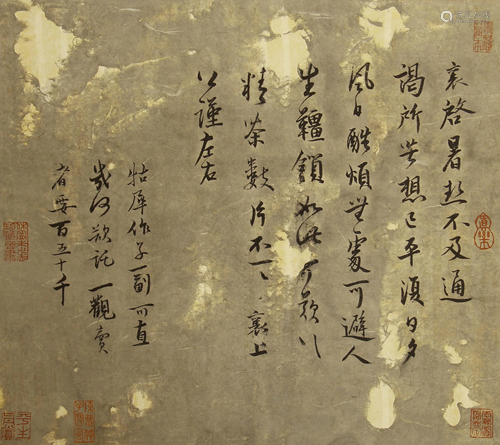 襄啓暑熱不及通
謁所苦想已平復日夕
風日酷煩無處可避人
生韁鎖如此可歎可歎
精茶數片不一一襄上
公謹左右
牯犀作子一副可直
幾何欲託一觀賣
者要百五十千